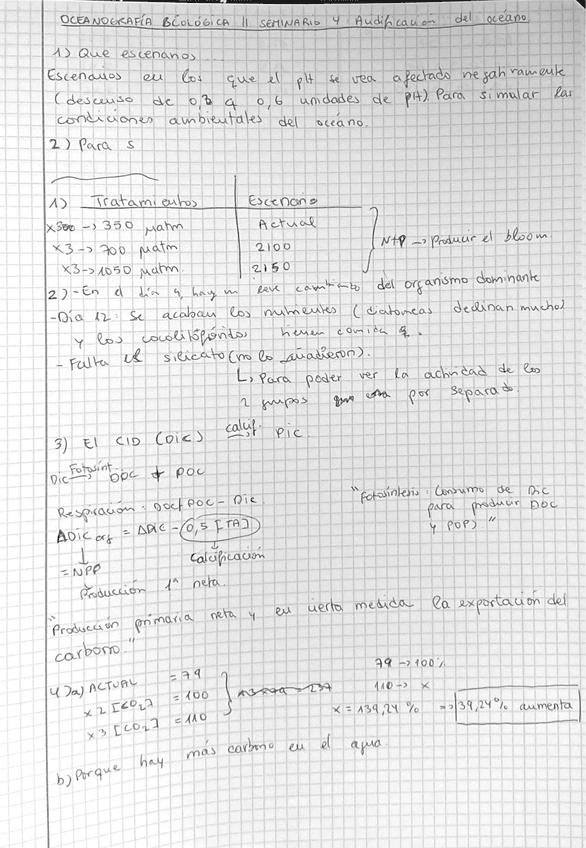 OCEANOGRAFÍA BIOLÓGICA II SEMINARIO 4 Acidificación del océano
1) Que escenarios
Escenarios en los que el pH se vea afectado negativamente
(descenso de 0,3 a 0,6 unidades de pH). Para simular las
condiciones ambientales del océano.
2) Para s
1) Tratamientos Escenario
x3 -> 350 µatm Actual
x3 -> 700 µatm 2100
x3 -> 1050 µatm 2150
N+P -> Producir el bloom
2) - En el día 9 hay un leve cambio del organismo dominante
- Día 12: Se acaban los nutrientes (diatomeas declinan mucho)
y los cocolitofóridos tienen comida
- Falta silicato (no lo añadieron).
Para poder ver la actividad de los
2 grupos por separado.
3) El CID (DIC) calcif. -> PIC
DIC Fotosint. -> DOC + POC
Respiración: DOC+POC - DIC
"Fotosíntesis: Consumo de DIC
para producir DOC
y POP)"
ΔDIC org = ΔDIC - 0,5 [TA]
↓ Calcificación
= NPP
Producción 1ª neta.
"Producción primaria neta y en cierta medida la exportación del
carbono"
4) a) ACTUAL = 79
x2 [CO2] = 100
x3 [CO2] = 110
79 -> 100%
110 -> x
x = 139,24 % => 39,24% aumenta
b) Porque hay más carbono en el agua.